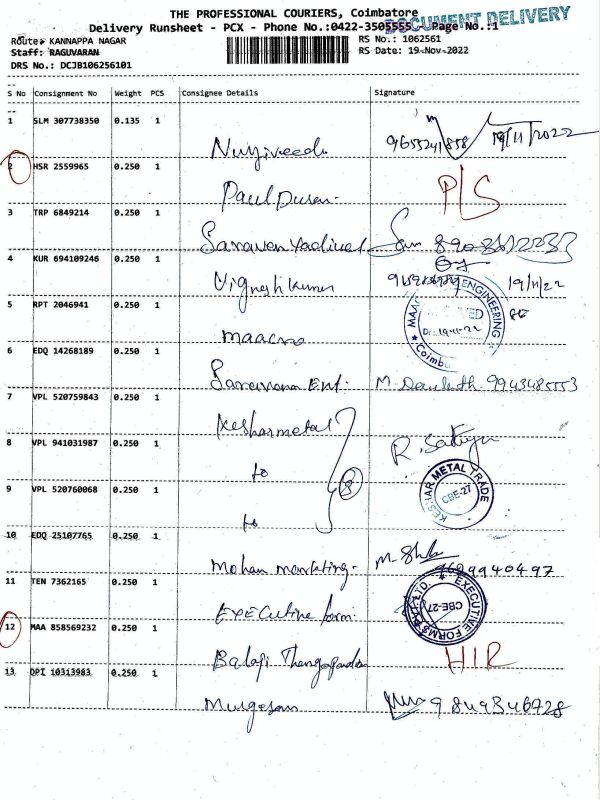 THE PROFESSIONAL COURIERS, Coimbatore
DOCUMENT DELIVERY
Delivery Runsheet - PCX - Phone No.:0422-3505555 Page No.:1
Route: KANNAPPA NAGAR RS No.: 1062561
Staff: RAGUVARAN RS Date: 19-Nov-2022
DRS No.: DCJB106256101
S No Consignment No Weight PCS Consignee Details Signature
1 SLM 307738350 0.135 1
9655241858 19/11/2022
2 HSR 2559965 0.250 1
Paul Duran. P/S
3 TRP 6849214 0.250 1
4 KUR 694109246 0.250 1
Vignesh Kumar 19/11/22
5 RPT 2046941 0.250 1
maacro
6 EDQ 14268189 0.250 1
Saravana Ent. 9943485553
7 VPL 520759843 0.250 1
Keshar metal
8 VPL 941031987 0.250 1
to R. Sathya
KESHAR METAL TRADE
CBE-27
9 VPL 520760068 0.250 1
to
10 EDQ 25107765 0.250 1
Mohan marketing.
11 TEN 7362165 0.250 1
Executive form.
EXECUTIVE FORMS PVT. LTD.
CBE-27
12 MAA 858569232 0.250 1
Balaji H/R
13 DPI 10313983 0.250 1
Murgesan 9849346728